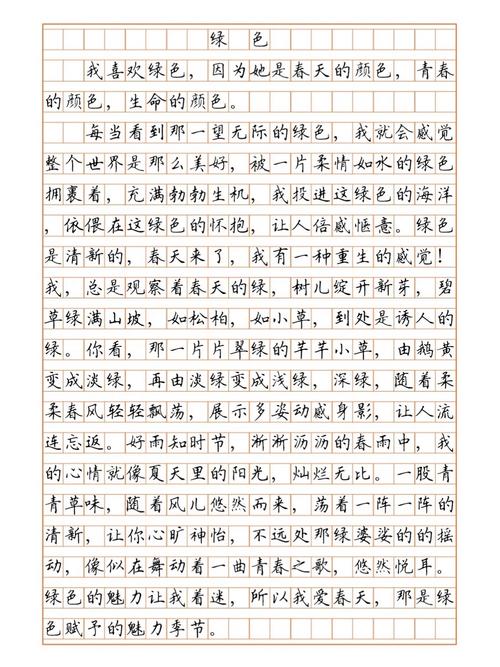 绿色
我喜欢绿色，因为她是春天的颜色，青春
的颜色，生命的颜色。
每当看到那一望无际的绿色，我就会感觉
整个世界是那么美好，被一片柔情如水的绿色
拥裹着，充满勃勃生机，我投进这绿色的海洋
，依偎在这绿色的怀抱，让人倍感惬意。绿色
是清新的，春天来了，我有一种重生的感觉！
我，总是观察着春天的绿，树儿绽开新芽，碧
草绿满山坡，如松柏，如小草，到处是诱人的
绿。你看，那一片片翠绿的芊芊小草，由鹅黄
变成淡绿，再由淡绿变成浅绿，深绿，随着柔
柔春风轻轻飘荡，展示多姿动感身影，让人流
连忘返。好雨知时节，淅淅沥沥的春雨中，我
的心情就像夏天里的阳光，灿烂无比。一股青
青草味，随着风儿悠然而来，荡着一阵一阵的
清新，让你心旷神怡，不远处那绿婆娑的的摇
动，像似在舞动着一曲青春之歌，悠然悦耳。
绿色的魅力让我着迷，所以我爱春天，那是绿
色赋予的魅力季节。